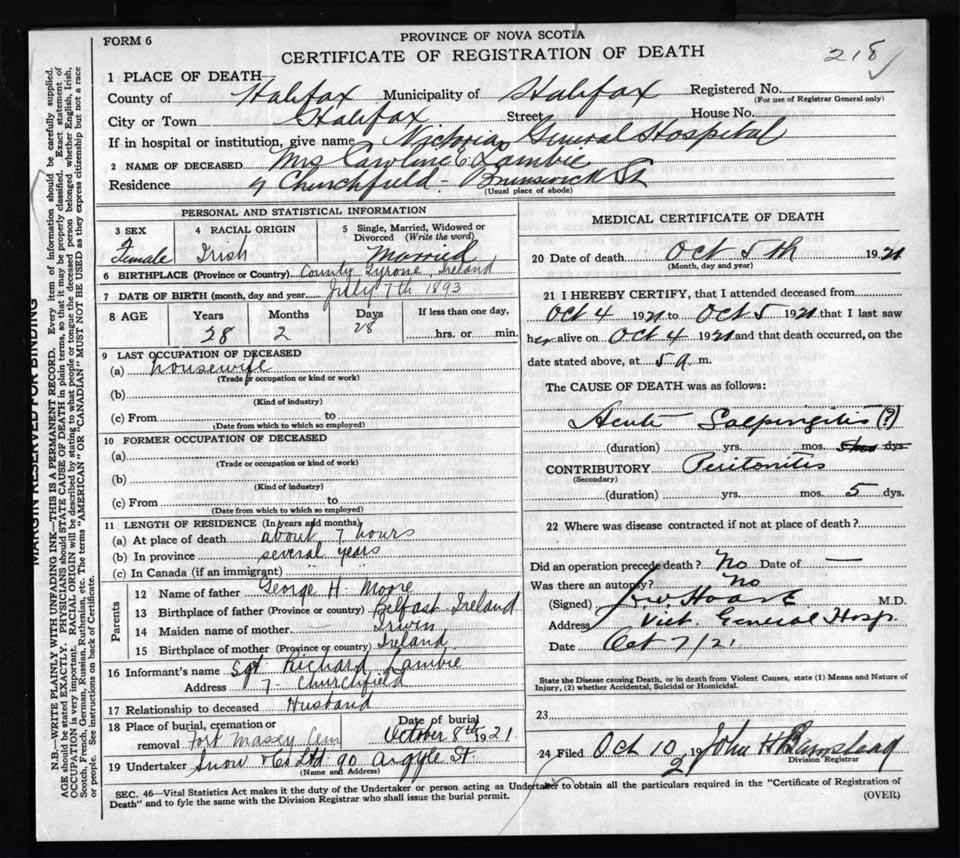 FORM 6
PROVINCE OF NOVA SCOTIA
CERTIFICATE OF REGISTRATION OF DEATH
218
1 PLACE OF DEATH
County of Halifax Municipality of Halifax Registered No.
(For use of Registrar General only)
City or Town Halifax Street House No.
If in hospital or institution, give name Victoria General Hospital
2 NAME OF DECEASED Mrs Caroline E. Lambie
Residence 7 Churchfield. Brunswick St
(Usual place of abode)
PERSONAL AND STATISTICAL INFORMATION
3 SEX Female
4 RACIAL ORIGIN Irish
5 Single, Married, Widowed or Divorced (Write the word) Married
6 BIRTHPLACE (Province or Country) County Tyrone, Ireland
7 DATE OF BIRTH (month, day and year) July 7th 1893
8 AGE Years Months Days If less than one day,
28 2 28 hrs. or min.
9 LAST OCCUPATION OF DECEASED
(a) housewife
(Trade or occupation or kind or work)
(b)
(Kind of industry)
(c) From to
(Date from which to which so employed)
10 FORMER OCCUPATION OF DECEASED
(a)
(Trade or occupation or kind or work)
(b)
(Kind of industry)
(c) From to
(Date from which to which so employed)
11 LENGTH OF RESIDENCE (In years and months)
(a) At place of death about 7 hours
(b) In province several years
(c) In Canada (if an immigrant)
Parents
12 Name of father George H. Moore
13 Birthplace of father (Province or country) Belfast Ireland
14 Maiden name of mother Irwin
15 Birthplace of mother (Province or country) Ireland
16 Informant's name Sgt. Richard Lambie
Address 7 - Churchfield
17 Relationship to deceased Husband
18 Place of burial, cremation or removal Fort Massey Cem Date of burial October 8th 1921
19 Undertaker Snow & Co Ltd 90 Argyle St.
(Name and Address)
MEDICAL CERTIFICATE OF DEATH
20 Date of death Oct 5th 1921
(Month, day and year)
21 I HEREBY CERTIFY, that I attended deceased from
Oct 4 1921 to Oct 5 1921 that I last saw
her alive on Oct 4 1921 and that death occurred, on the
date stated above, at 5 a m.
The CAUSE OF DEATH was as follows:
Acute Salpingitis (?)
(duration) yrs. mos. dys
CONTRIBUTORY Peritonitis
(Secondary)
(duration) yrs. mos. 5 dys.
22 Where was disease contracted if not at place of death?
Did an operation precede death? No Date of —
Was there an autopsy? No
(Signed) M.D.
Address Vict. General Hosp.
Date Oct 7/21
State the Disease causing Death, or in death from Violent Causes, state (1) Means and Nature of Injury, (2) whether Accidental, Suicidal or Homicidal.
23
24 Filed Oct 10 192 John H Barnstead
Division Registrar
SEC. 46—Vital Statistics Act makes it the duty of the Undertaker or person acting as Undertaker to obtain all the particulars required in the "Certificate of Registration of
Death" and to fyle the same with the Division Registrar who shall issue the burial permit.
(OVER)
MARGIN RESERVED FOR BINDING
N.B.—WRITE PLAINLY WITH UNFADING INK—THIS IS A PERMANENT RECORD. Every item of information should be carefully supplied.
AGE should be stated EXACTLY. PHYSICIANS should STATE CAUSE OF DEATH in plain terms, so that it may be properly classified. Exact statement of
OCCUPATION is very important. RACIAL ORIGIN will be described by stating to what people or tongue the deceased person belonged whether English, Irish,
Scotch, French, German, Russian, Ruthenian, etc. The terms "AMERICAN" OR "CANADIAN" MUST NOT BE USED as they express citizenship but not a race
or people. See instructions on back of Certificate.